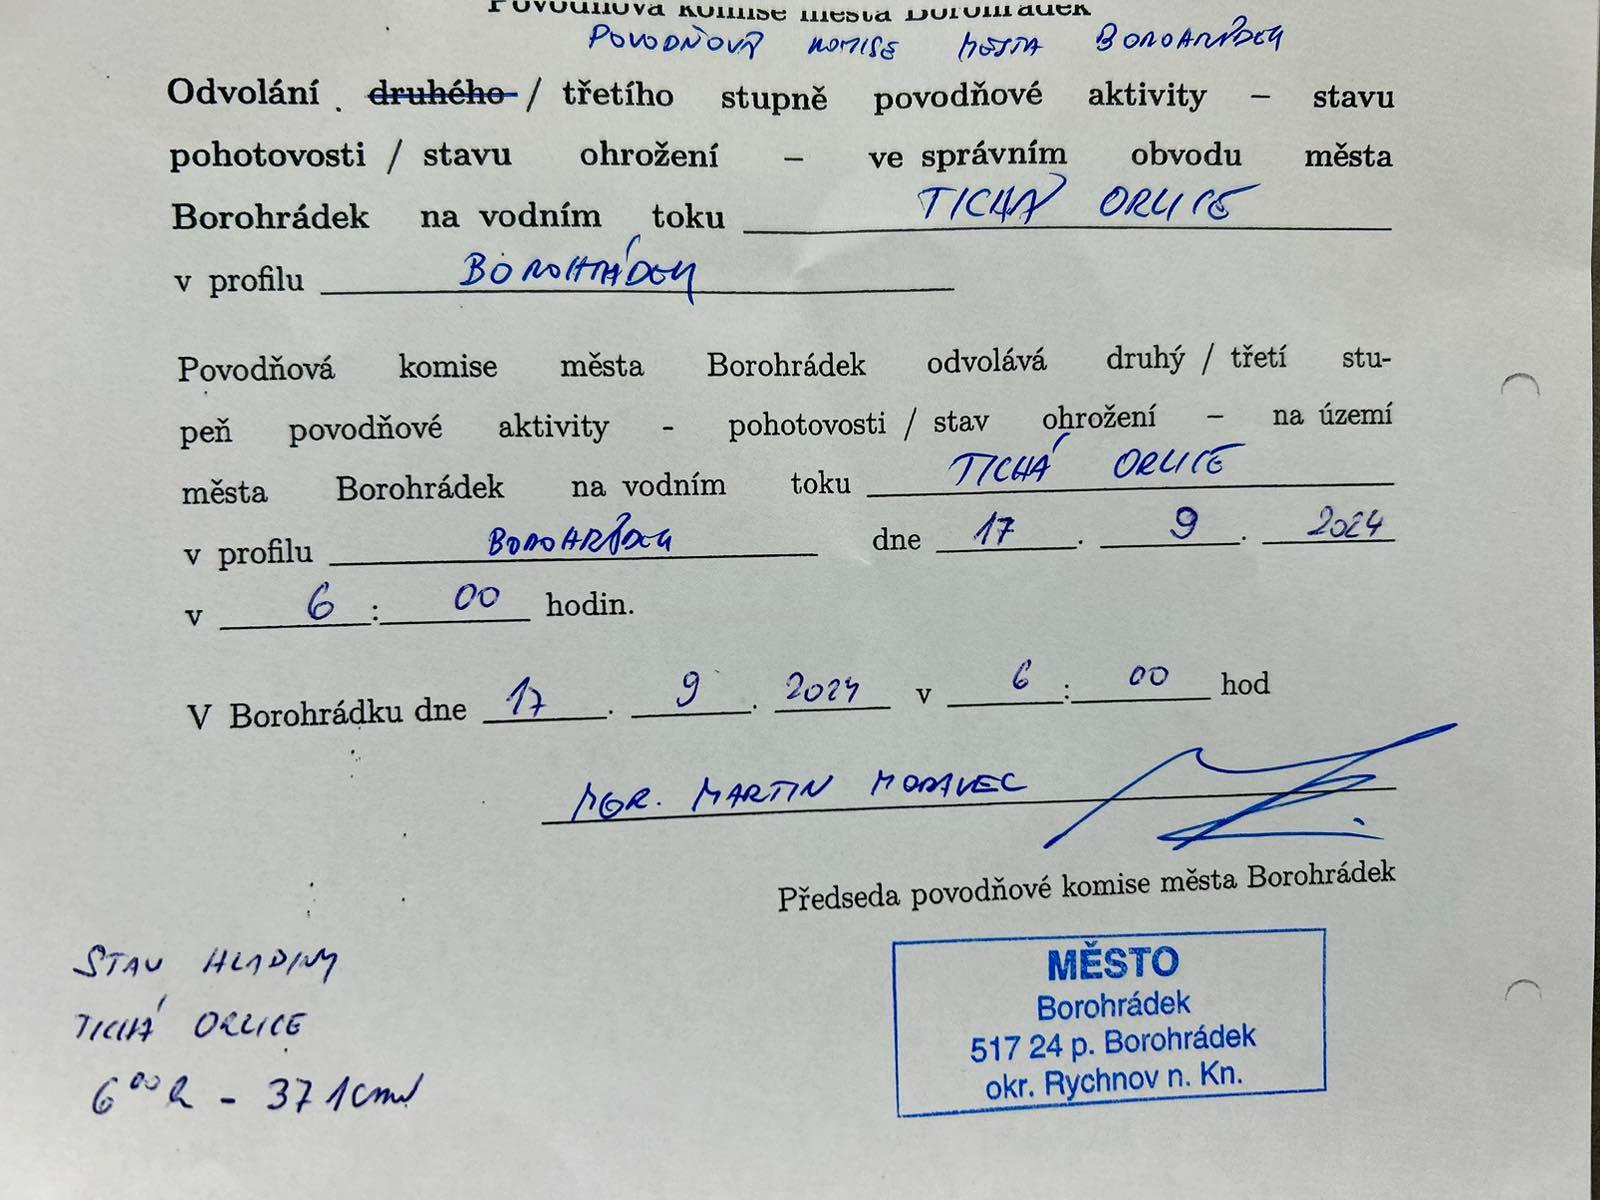 Povodňová komise města Borohrádek
POVODŇOVÁ KOMISE MĚSTA BOROHRÁDEK
Odvolání . druhého / třetího stupně povodňové aktivity – stavu
pohotovosti / stavu ohrožení – ve správním obvodu města
Borohrádek na vodním toku TICHÁ ORLICE
v profilu BOROHRÁDEK
Povodňová komise města Borohrádek odvolává druhý / třetí stu-
peň povodňové aktivity - pohotovosti / stav ohrožení – na území
města Borohrádek na vodním toku TICHÁ ORLICE
v profilu BOROHRÁDEK dne 17 . 9 . 2024
v 6 : 00 hodin.
V Borohrádku dne 17 . 9 . 2024 v 6 : 00 hod
MGR. MARTIN MORAVEC
Předseda povodňové komise města Borohrádek
MĚSTO
Borohrádek
517 24 p. Borohrádek
okr. Rychnov n. Kn.
STAV HLADINY
TICHÁ ORLICE
6⁰⁰ h - 371cm